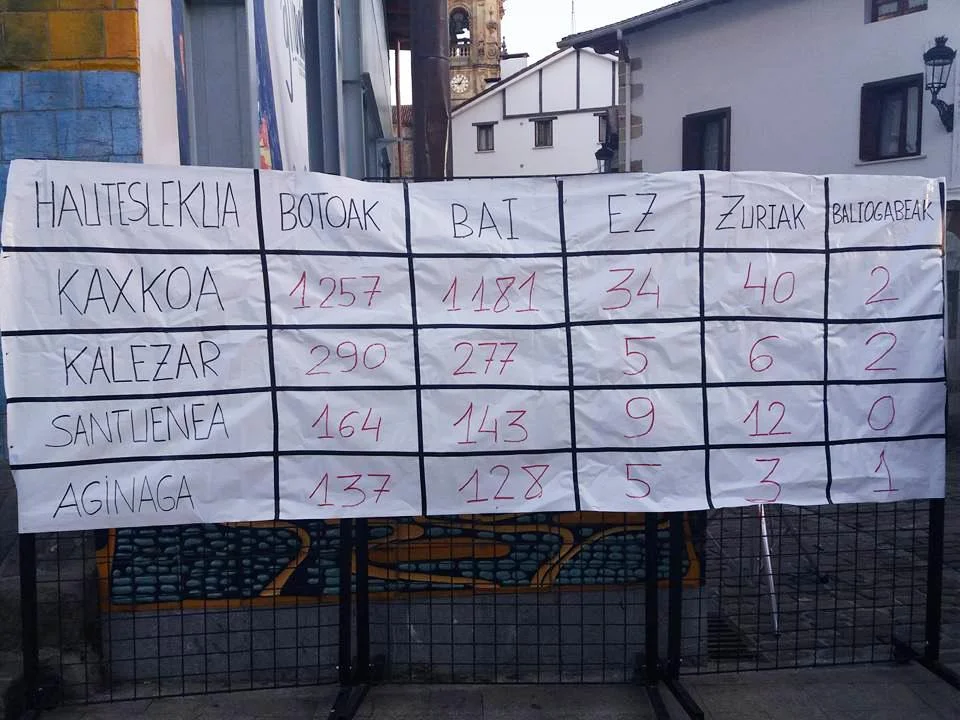 HAUTESLEKUA BOTOAK BAI EZ ZURIAK BALIOGABEAK
KAXKOA 1257 1181 34 40 2
KALEZAR 290 277 5 6 2
SANTUENEA 164 143 9 12 0
AGINAGA 137 128 5 3 1